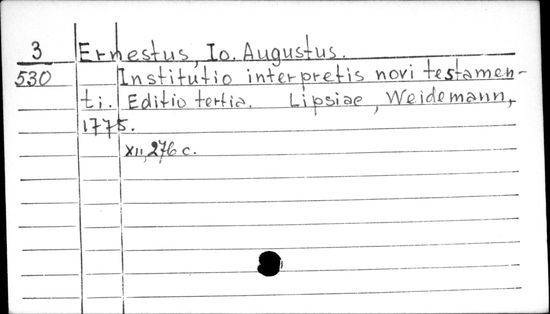 3 Ernestus, Io. Augustus.
530 Institutio interpretis novi testamen-
ti. Editio tertia. Lipsiae, Weidemann,
1775.
XII, 276 c.